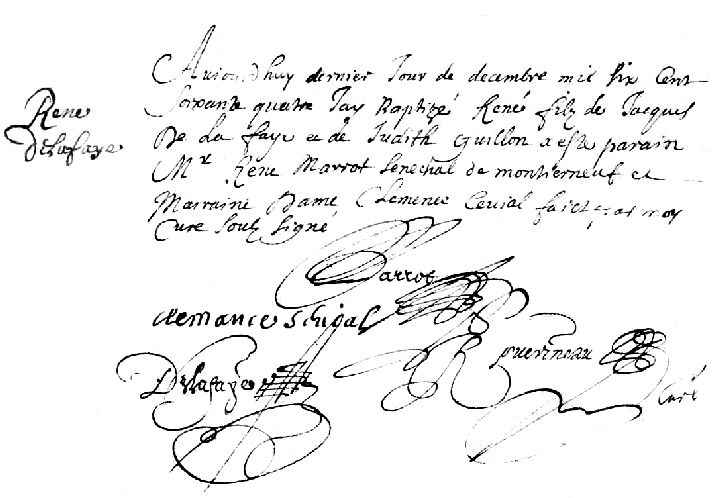 Rene
Delafaye
Aujourdhuy dernier Jour de decembre mil six Cent
Soixante quatre Jay Baptizé René filz de Jacques
De La faye et de Judith Guillon a este parain
Mr Rene Marrot Senechal de montierneuf et
Marraine Dame Clemence faict par moy
Cure soubz signé
Marrot
clemance
Delafaye
Guerineau
Curé